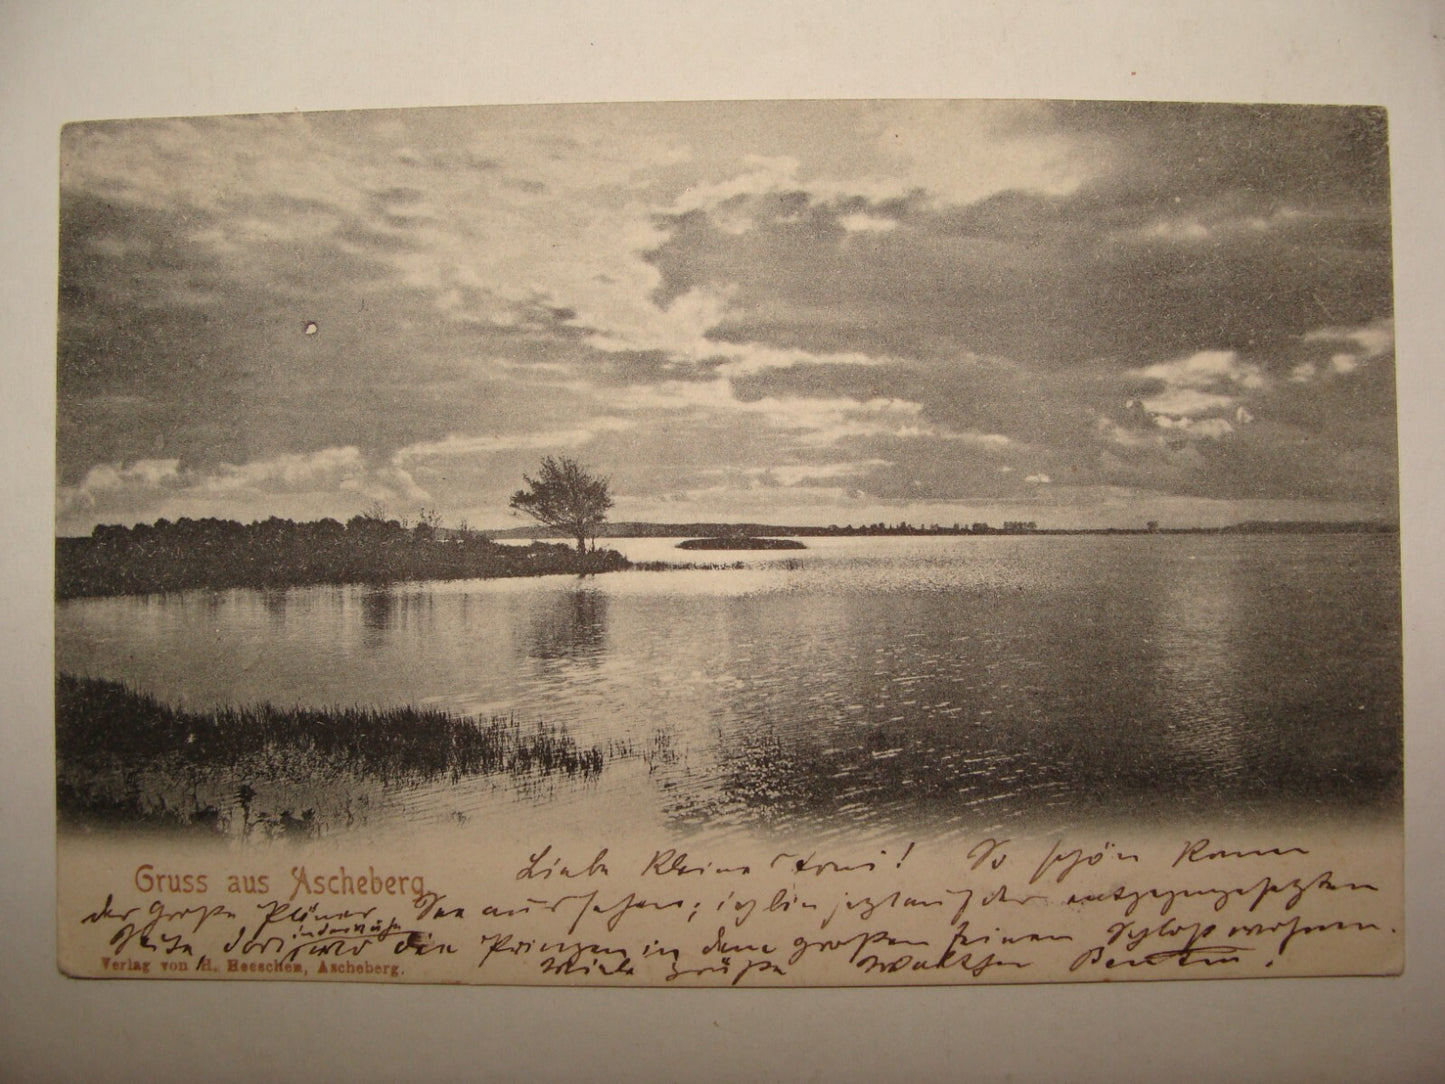 Gruss aus Ascheberg
Liebe kleine Erni! So schön kann
der große Plöner See aussehen; ich bin jetzt auf der entgegengesetzten
Seite dort wo die Prinzen in dem großen feinen Schloß wohnen.
in der Nähe
Viele Grüße Walther
Verlag von H. Heeschen, Ascheberg.